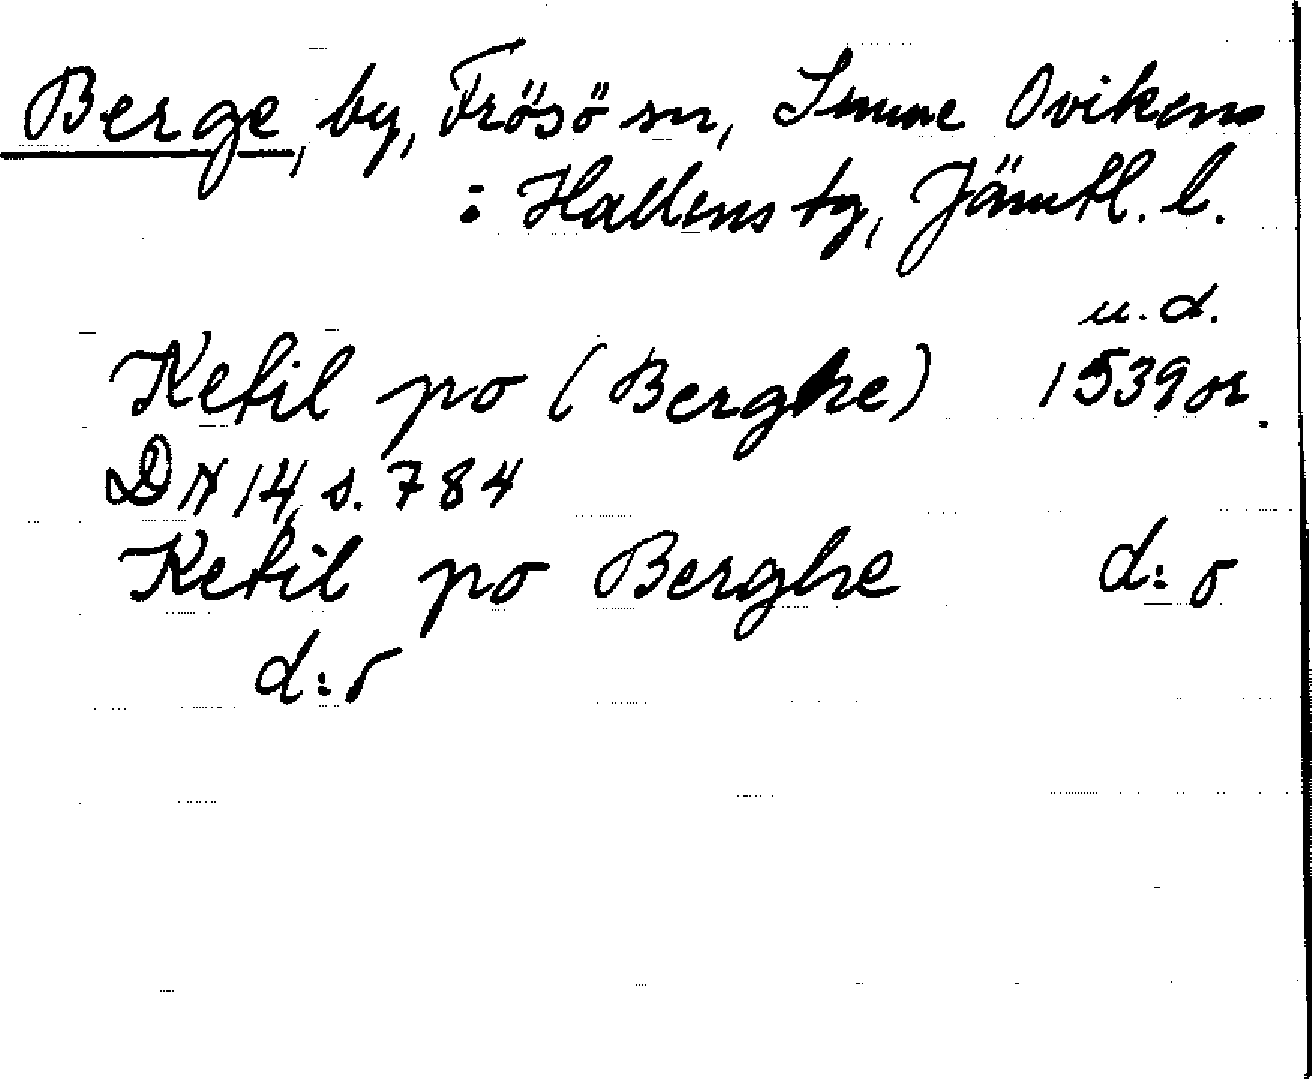 Berge, by, Frösö sn, Sunne Ovikens
: Hallens tg, Jämtl. l.
u.d.
Ketil po (Berghe) 1539 or.
DN 14, s. 784
Ketil po Berghe d:o
d:o